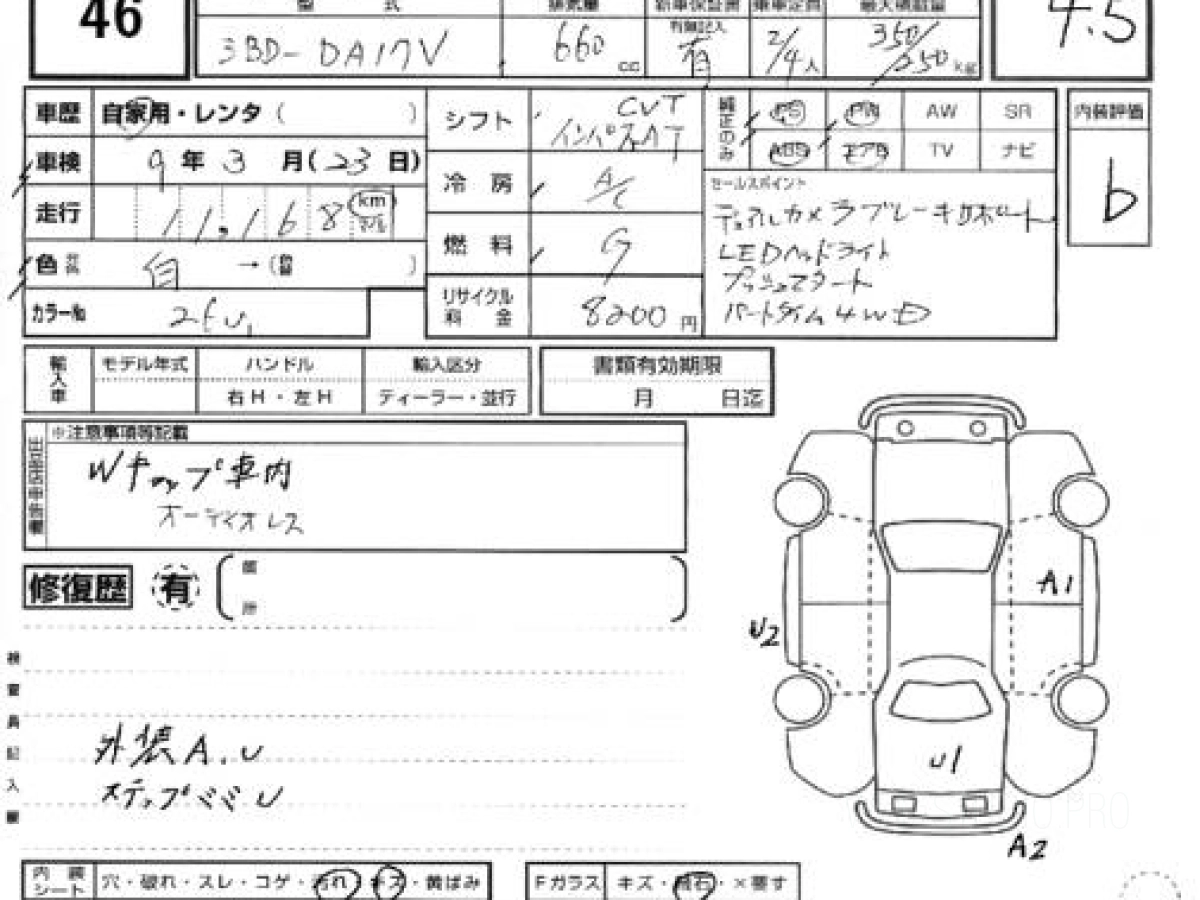 46
型 式
排気量
新車保証書
乗車定員
最大積載量
有無記入
3BD- DA17V
660 cc
有
2/4人
350/250kg
4.5
車歴 自家用・レンタ( )
車検 9年3月(23日)
走行 11,168 km
色 白 →( )
カラー№ 26U
シフト CVT
インパネAT
冷房 A/C
燃料 G
リサイクル料金 8200円
純正のみ PS PW AW SR
ABS エアB TV ナビ
内装評価
b
セールスポイント
デュアルカメラブレーキサポート
LEDヘッドライト
プッシュスタート
パートタイム4WD
輸入車 モデル年式 ハンドル 輸入区分
右H・左H ディーラー・並行
書類有効期限
月 日迄
※注意事項等記載
Wキャップ車内
オーディオレス
修復歴 有
A1
U2
検査員記入欄
外装A.U
ステップ U
U1
A2
内装シート 穴・破れ・スレ・コゲ・汚れ・キズ・黄ばみ
Fガラス キズ・飛石・×要す